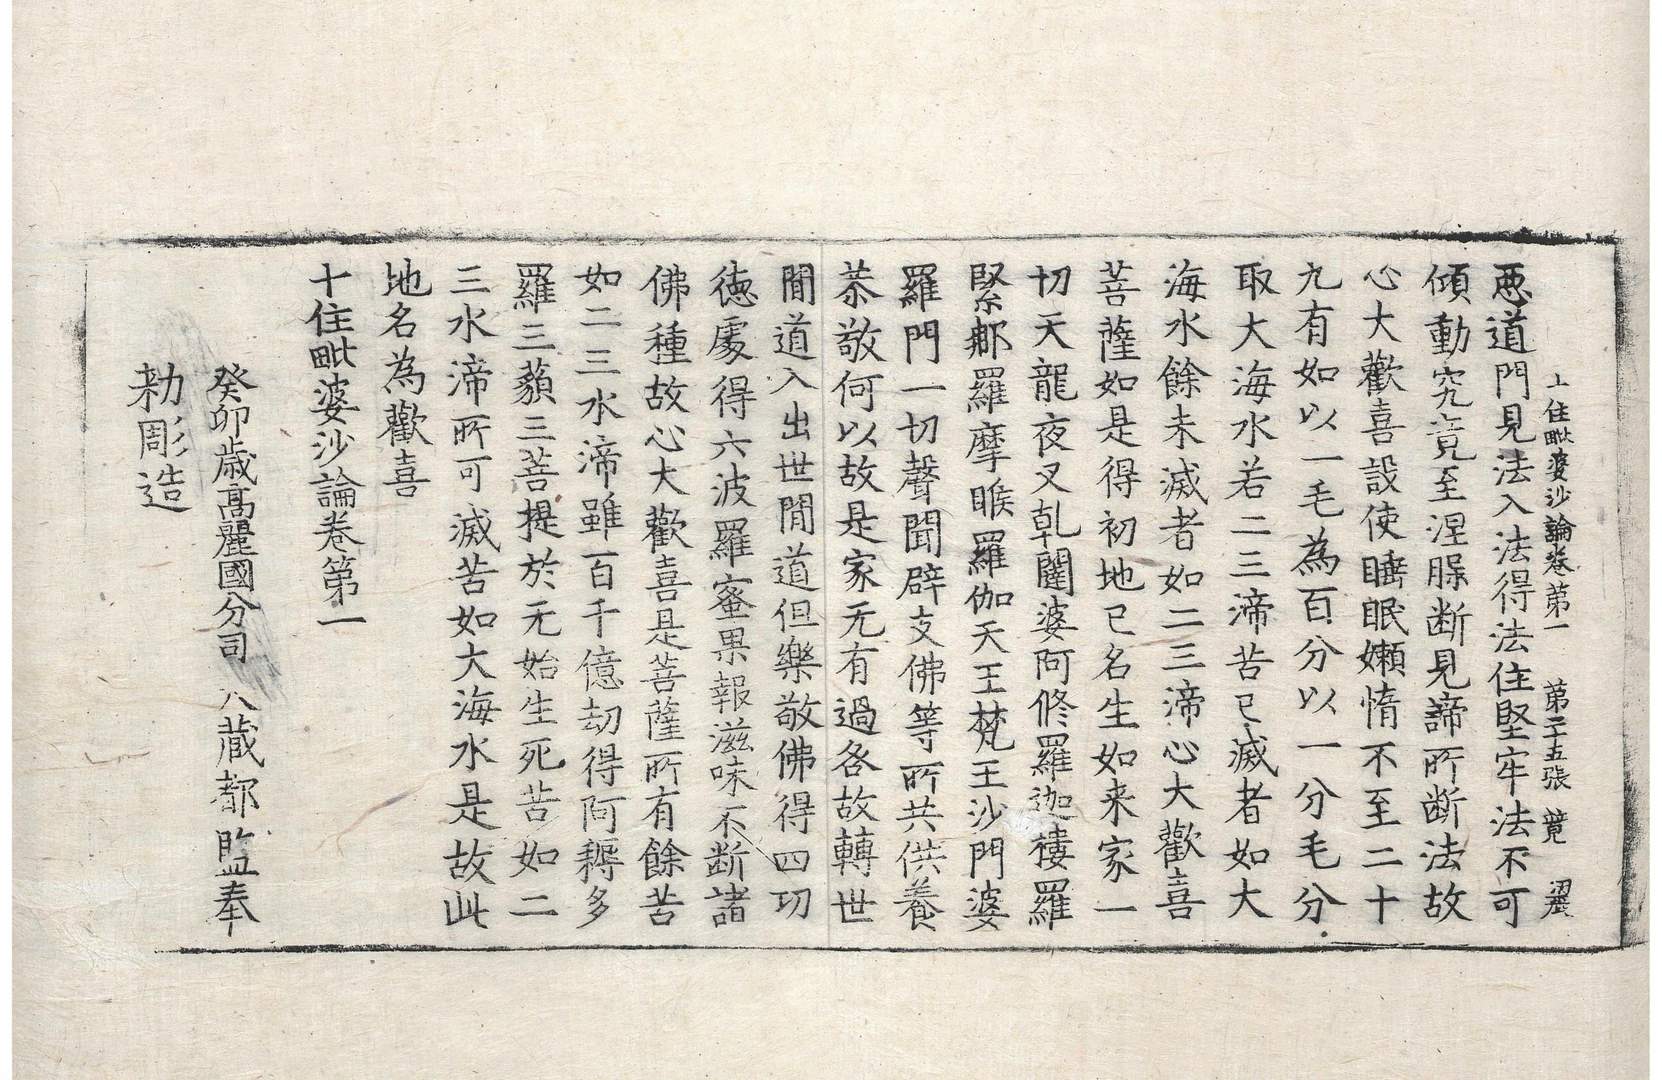 十住毗婆沙論卷第一 第二十五張 竟
惡道門見法入法得法住堅牢法不可
傾動究竟至涅脲断見諦所断法故
心大歡喜設使睡眠嬾惰不至二十
九有如以一毛為百分以一分毛分
取大海水若二三渧苦已滅者如大
海水餘未滅者如二三渧心大歡喜
菩薩如是得初地已名生如来家一
切天龍夜叉乹闥婆阿脩羅迦樓羅
緊那羅摩睺羅伽天王梵王沙門婆
羅門一切聲聞辟支佛等所共供養
恭敬何以故是家无有過咎故轉世
間道入出世間道但樂敬佛得四功
德處得六波羅蜜果報滋味不断諸
佛種故心大歡喜是菩薩所有餘苦
如二三水渧雖百千億劫得阿耨多
羅三藐三菩提於无始生死苦如二
三水渧所可滅苦如大海水是故此
地名為歡喜
十住毗婆沙論卷第一
癸卯歲高麗國分司大藏都監奉
勑彫造